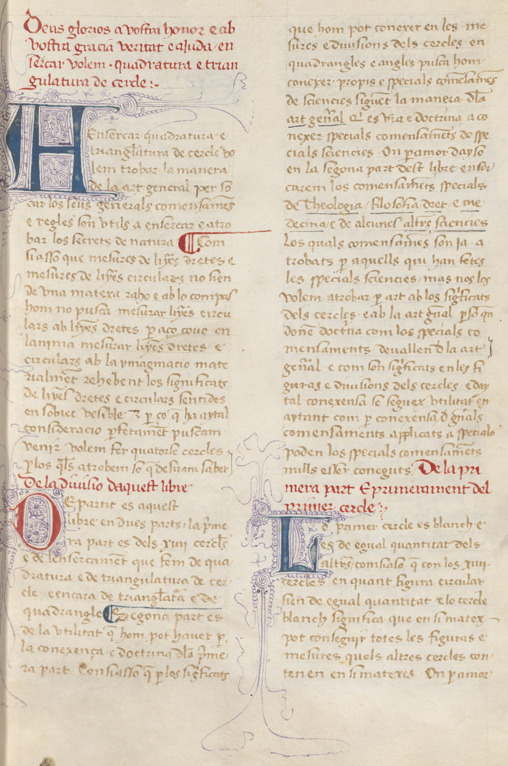 Deus glorios a vostra honor e ab
vostra gracia veritat e aiuda en
sercar volem · quadratura e trian
gulatura de cercle :~
A Ensercar quadratura e
trianglatura de cercle vo
lem trobar la manera
de la art general per so
car los seus generals comensamẽs
e regles son vtils a ensercar e atro
bar los secrets de natura Com
siasso que mesures de liȳes dretes e
mesures de liȳes circulars no sien
de vna matera raho e ab lo compas
hom no pusca mesurar liȳes circu
lars ab liȳes dretes p aço cove en
lanima mesurar liȳes dretes e
circulars ab la ymaginatio mate
rialmẽt rehebent los significats
de liȳes dretes e circulars sentides
en sobire vesible p̱ ço q̃ ha aytal
consideratio p̱fetamẽt puscam
venir volem fer quatorse cercles
p̱ los q̃ls atrobem so q̃ desiram saber
De la diuisio daquest libre
DE Partit es aquest
libre en dues parts / la p̃me
ra part es dels xiiii cercles
e de lensercamẽt que fem de qua
dratura e de triangulatura de cer
cle e encara de trianglat̃a e de
quadrangle Segona part es
de la vtilitat q̃ hom pot hauer p̱
la conexença e doctrina dla p̃me
ra part Com siasso q̃ p̱ los significats
que hom pot conexer en les me
sures e diuisions dels cercles en
quadrangles e angles pusca hom
conexer propis e specials comẽsamẽs
de sciencies seguet la manera dla
art gen̄al Q̃ es via e doctrina a co
nexer specials comensamẽts de spe
cials sciencies On p̱ amor dayso
en la segona part dest libre enser
carem los comensamẽts specials
de theologia / filosofia dret e me
decina / e de alcunes altres sciencies
los quals comensamẽs son ia a
trobats p̱ aquells qui han fetes
les specials sciencies mas nos los
volem atrobar p̱ art ab los sig̃ficats
dels cercles e ab la art gn̄al p̱ so q̃n
donẽ doctrina com los specials co
mensaments deuallen d la art
gen̄al e com son sig̃ficats en les fi
guras e diuisions dels cercles e day
tal conexensa se segueix vtilitat en
aytant com p̱ conexensa d gn̄als
comensaments applicats a specials
poden los specials comensamẽts
mills esser coneguts De la pri
mera part E primerament del
primer cercle :~
LO primer cercle es blanch e
es de egual quantitat dels
altres com siasso q̃ com los xiii
cercles en quant figura circular
sien de egual quantitat e lo cercle
blanch significa que en si mateix
pot conseguir totes les figures e
mesures quels altres cercles con
tenen en si matexes On p̱ amor